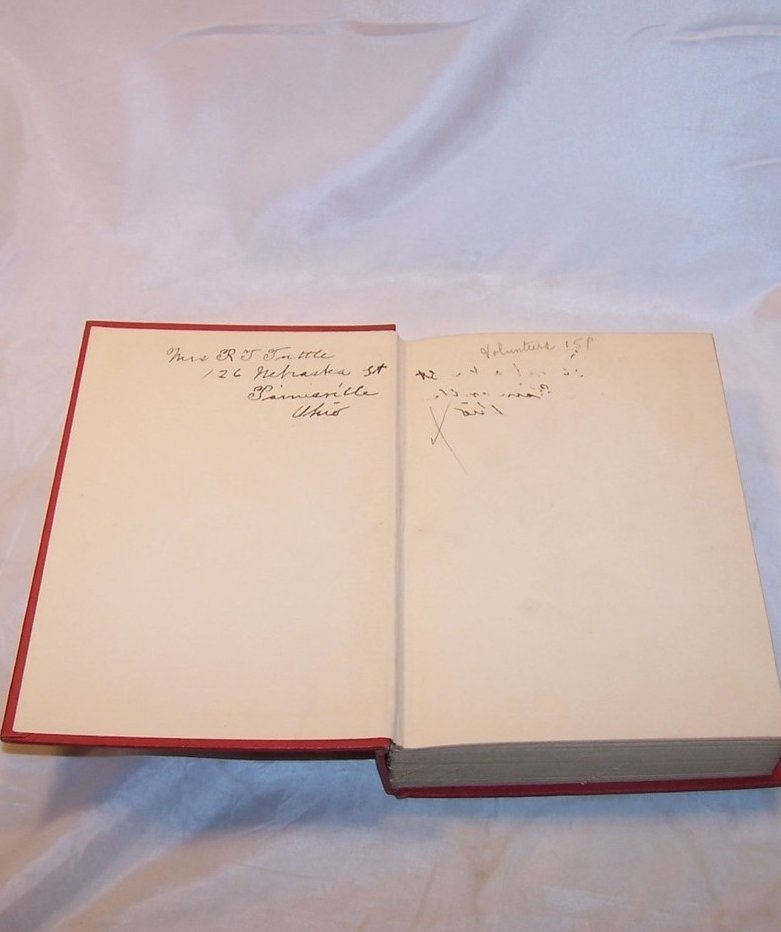 Mrs R T Tuttle
126 Nebraska St
Painesville
Ohio
Volunteers 15P